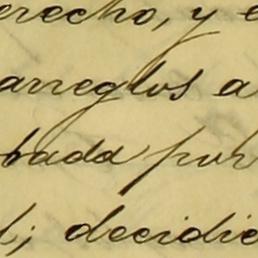 erecho, y e
arreglos a
bada por
l; decidie